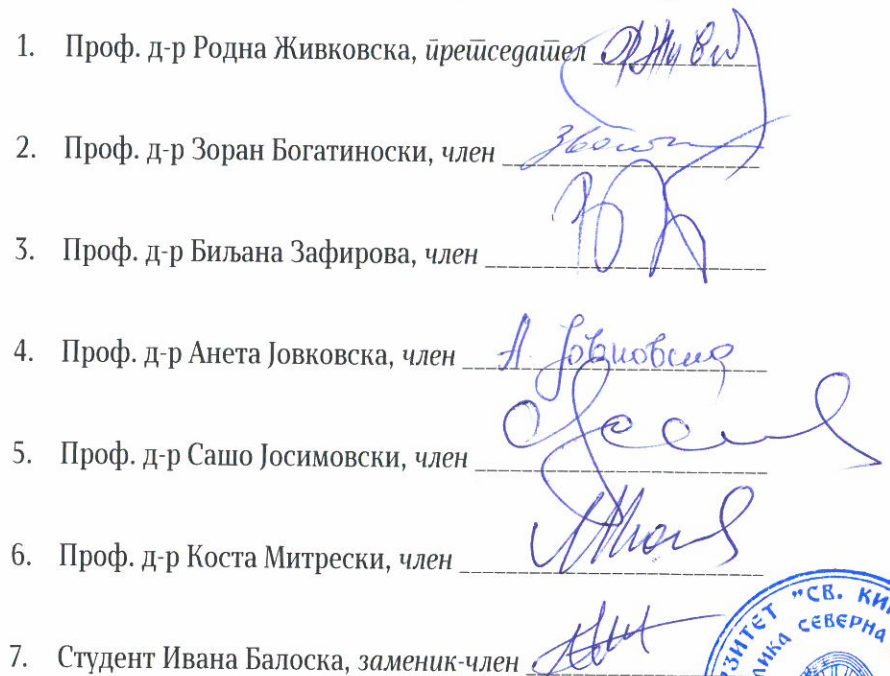 1. Проф. д-р Родна Живковска, претседател
2. Проф. д-р Зоран Богатиноски, член
3. Проф. д-р Биљана Зафирова, член
4. Проф. д-р Анета Јовковска, член
А. Јовковска
5. Проф. д-р Сашо Јосимовски, член
6. Проф. д-р Коста Митрески, член
7. Студент Ивана Балоска, заменик-член
"СВ. КИ
СЕВЕРНА